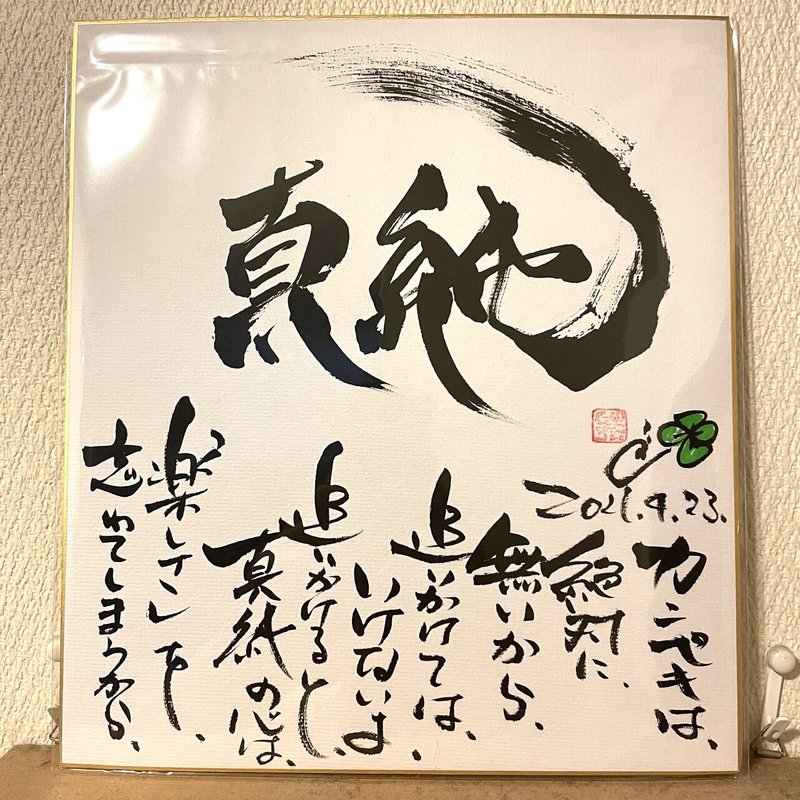 真
2021.9.23.
カンペキは、
絶対に、
無いから、
追いかけては、
いけないよ、
追いかけると、
真の心は、
楽しさを、
忘れてしまうから、